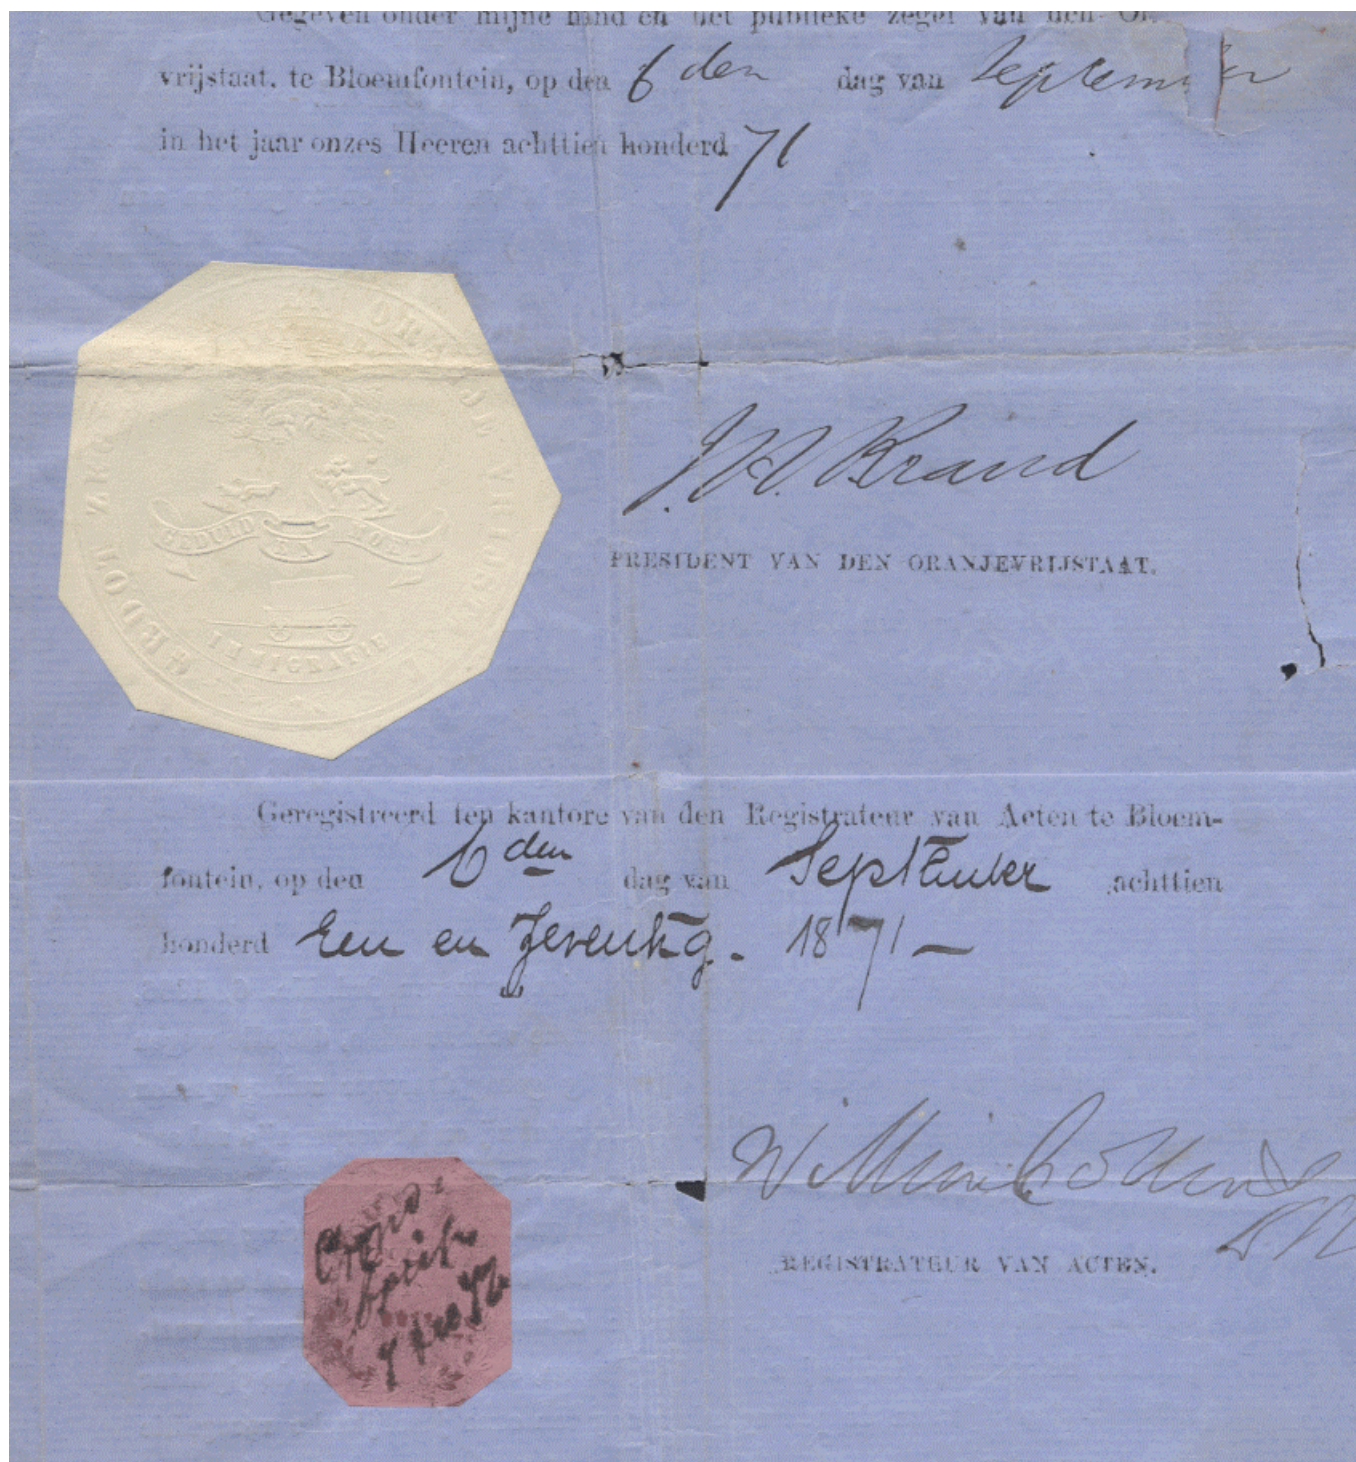 Gegeven onder mijne hand en het publieke zegel van den
vrijstaat, te Bloemfontein, op den 6 den dag van September
in het jaar onzes Heeren achttien honderd 71
GROOT ZEGEL
ORANJE VRIJSTAAT
GEDULD EN MOED
IMMIGRATIE
J H Brand
PRESIDENT VAN DEN ORANJEVRIJSTAAT.
Geregistreerd ten kantore van den Registrateur van Acten te Bloem-
fontein, op den 6den dag van September achttien
honderd Een en Zeventig. 1871 —
REGISTRATEUR VAN ACTEN.